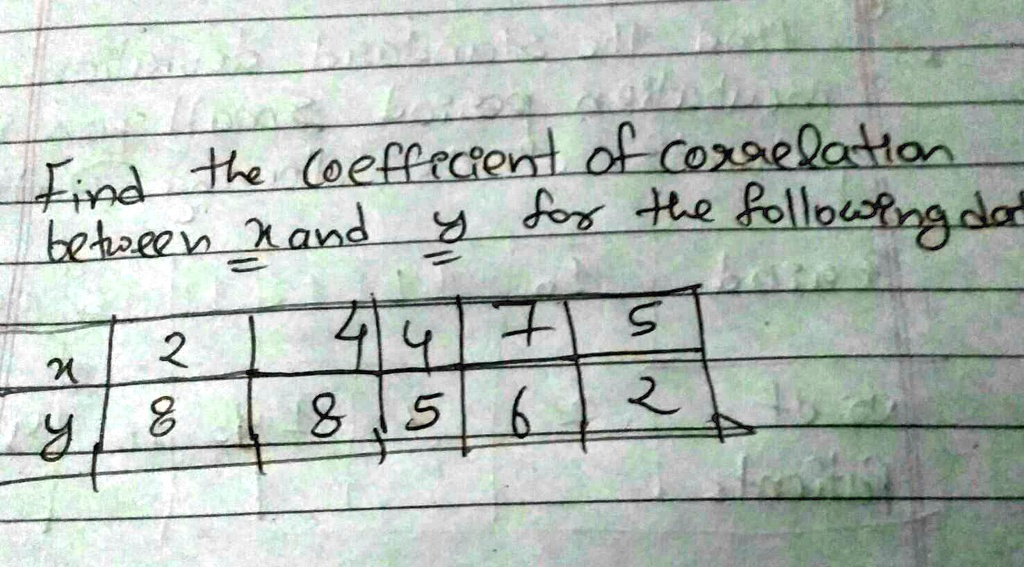 Find the Coefficient of Correlation
between x and y for the following dat
x 2 4 4 7 5
y 8 8 5 6 2